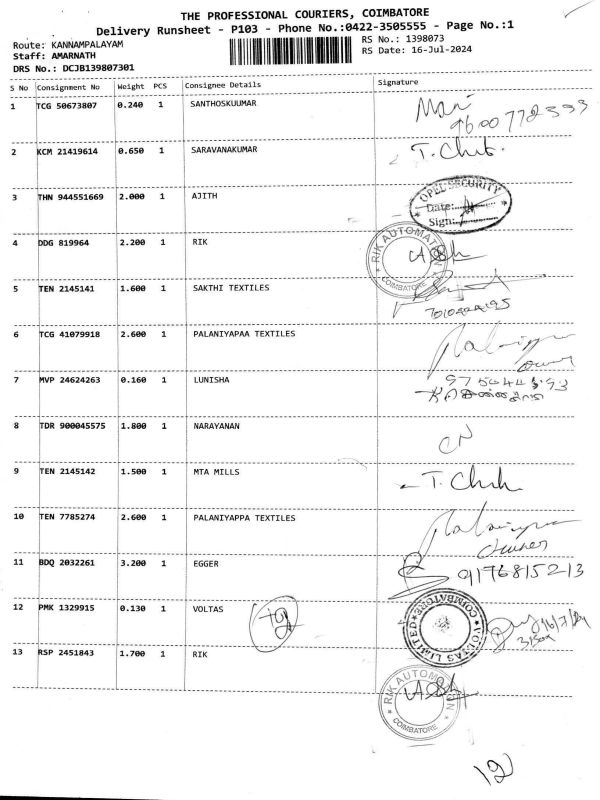 THE PROFESSIONAL COURIERS, COIMBATORE
Delivery Runsheet - P103 - Phone No.:0422-3505555 - Page No.:1
Route: KANNAMPALAYAM
RS No.: 1398073
Staff: AMARNATH
RS Date: 16-Jul-2024
DRS No.: DCJB139807301
S No Consignment No Weight PCS Consignee Details Signature
1 TCG 50673807 0.240 1 SANTHOSKUUMAR
Mari
2 KCM 21419614 0.650 1 SARAVANAKUMAR
3 THN 944551669 2.000 1 AJITH
OPEL SECURITY
Date:
Sign:
4 DDG 819964 2.200 1 RIK
RIK AUTOMATION
COIMBATORE
5 TEN 2145141 1.600 1 SAKTHI TEXTILES
6 TCG 41079918 2.600 1 PALANIYAPAA TEXTILES
owner
7 MVP 24624263 0.160 1 LUNISHA
8 TDR 900045575 1.800 1 NARAYANAN
CN
9 TEN 2145142 1.500 1 MTA MILLS
10 TEN 7785274 2.600 1 PALANIYAPPA TEXTILES
owner
11 BDQ 2032261 3.200 1 EGGER
9176815213
12 PMK 1329915 0.130 1 VOLTAS
VOLTAS LIMITED
COIMBATORE
13 RSP 2451843 1.700 1 RIK
RIK AUTOMATION
COIMBATORE